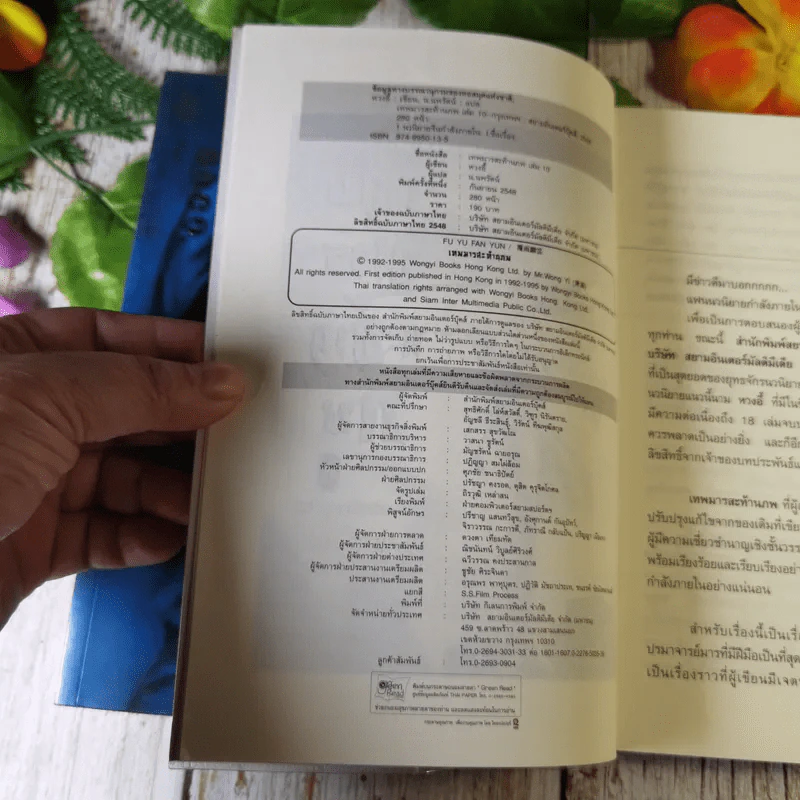 ข้อมูลทางบรรณานุกรมของหอสมุดแห่งชาติ
หวงอี้ : เขียน, น.นพรัตน์ : แปล
เทพมารสะท้านภพ เล่ม 10.-กรุงเทพฯ : สยามอินเตอร์บุ๊คส์
280 หน้า
1 นวนิยายจีนกำลังภายใน I.ชื่อเรื่อง
ISBN 974-9950-13-5
ชื่อหนังสือ : เทพมารสะท้านภพ เล่ม 10
ผู้เขียน : หวงอี้
ผู้แปล : น.นพรัตน์
พิมพ์ครั้งที่หนึ่ง : กันยายน 2548
จำนวน : 280 หน้า
ราคา : 195 บาท
เจ้าของฉบับภาษาไทย : บริษัท สยามอินเตอร์มัลติมีเดีย จำกัด (มหาชน)
ลิขสิทธิ์ฉบับภาษาไทย 2548 : บริษัท สยามอินเตอร์มัลติมีเดีย จำกัด (มหาชน)
FU YU FAN YUN /
เทพมารสะท้านภพ
© 1992-1995 Wongyi Books Hong Kong Ltd. by Mr.Wong Yi
All rights reserved. First edition published in Hong Kong in 1992-1995 by Wongyi Books
Thai translation rights arranged with Wongyi Books Hong Kong Ltd.
and Siam Inter Multimedia Public Co.,Ltd.
ลิขสิทธิ์ฉบับภาษาไทยเป็นของ สำนักพิมพ์สยามอินเตอร์บุ๊คส์ ภายใต้การดูแลของ บริษัท สยามอินเตอร์มัลติมีเดีย จำกัด
อย่างถูกต้องตามกฎหมาย ห้ามลอกเลียนแบบส่วนใดส่วนหนึ่งของหนังสือเล่มนี้
รวมทั้งการจัดเก็บ ถ่ายทอด ไม่ว่ารูปแบบ หรือวิธีการใดๆ ในกระบวนการอิเล็กทรอนิกส์
การบันทึก การถ่ายภาพ หรือวิธีการใดโดยไม่ได้รับอนุญาต
ยกเว้นเพื่อการประชาสัมพันธ์หนังสือเท่านั้น
หนังสือทุกเล่มที่มีความเสียหายและข้อผิดพลาดจากกระบวนการผลิต
ทางสำนักพิมพ์สยามอินเตอร์บุ๊คส์ยินดีรับคืนและจัดส่งเล่มที่มีความถูกต้องสมบูรณ์ไปให้แทน
ผู้จัดพิมพ์ : สำนักพิมพ์สยามอินเตอร์บุ๊คส์
คณะที่ปรึกษา : สุทธิศักดิ์ โล่ห์สวัสดิ์, วิฑูร นิรันตราย,
ธัญชลี ธีระสินธุ์, วิรัตน์ ทีฆพุฒิสกุล
ผู้จัดการสายงานธุรกิจสิ่งพิมพ์ : เสกสรร สุขวัฒโณ
บรรณาธิการบริหาร : วาสนา ชูรัตน์
ผู้ช่วยบรรณาธิการ : มัญชรัตน์ ฉายอรุณ
เลขานุการกองบรรณาธิการ : ปฏิญญา สมไม่ลือม
หัวหน้าฝ่ายศิลปกรรม/ออกแบบปก : ศุภชัย ชนาธิปัตย์
ฝ่ายศิลปกรรม : ปรัชญา คงรอด
จัดรูปเล่ม : ถิรวุฒิ เหล่าสน
เรียงพิมพ์ : ฝ่ายคอมพิวเตอร์สยามสปอร์ตฯ
พิสูจน์อักษร : ปรีชาญ แสนทวีสุข
จิราวรรณ กะการดี
ผู้จัดการฝ่ายการตลาด : ดวงตา เทียมทัด
ผู้จัดการฝ่ายประชาสัมพันธ์ : ณิชนันทน์ วิบูลย์ศิริวงศ์
ผู้จัดการฝ่ายต่างประเทศ : ฉวีวรรณ คงประสานกาล
ผู้จัดการฝ่ายประสานงานเตรียมผลิต : ชูชัย ศิระจินดา
ประสานงานเตรียมผลิต : อรุณพร พาทุบุตร
แยกสี : S.S.Film Process
พิมพ์ที่ : บริษัท กิเลนการพิมพ์ จำกัด
จัดจำหน่ายทั่วประเทศ : บริษัท สยามอินเตอร์มัลติมีเดีย จำกัด (มหาชน)
459 ซ.ลาดพร้าว 48 แขวงสามเสนนอก
เขตห้วยขวาง กรุงเทพฯ 10310
โทร.0-2694-3031-33 ต่อ 1601-1607
ลูกค้าสัมพันธ์ : โทร.0-2693-0904
Green Read
พิมพ์บนกระดาษถนอมสายตา "Green Read"
ช่วยถนอมสุขภาพสายตาของท่าน และลดแสงสะท้อนในการอ่าน
มีข่าวดีมาบอกกกกก...
แฟนนวนิยายกำลังภายในโ
เพื่อเป็นการตอบสนองผู้
ทุกท่าน ขณะนี้ สำนักพิมพ์สย
บริษัท สยามอินเตอร์มัลติมีเดีย
ที่เป็นสุดยอดของยุทธจักรนวนิยา
นวนิยายแนวนี้นาม หวงอี้ ที่มีในท
มีความต่อเนื่องถึง 18 เล่มจบบ
ควรพลาดเป็นอย่างยิ่ง และก็อีก
ลิขสิทธิ์จากเจ้าของบทประพันธ์แ
เทพมารสะท้านภพ ที่ผู้อ
ปรับปรุงแก้ไขจากของเดิมที่เขีย
ผู้มีความเชี่ยวชำนาญเชิงชั้นวรร
พร้อมเรียงร้อยและเรียบเรียงอย่า
กำลังภายในอย่างแน่นอน
สำหรับเรื่องนี้เป็นเรื่อ
ปรมาจารย์มารที่มีฝีมือเป็นที่สุด
เป็นเรื่องราวที่ผู้เขียนมีเจต